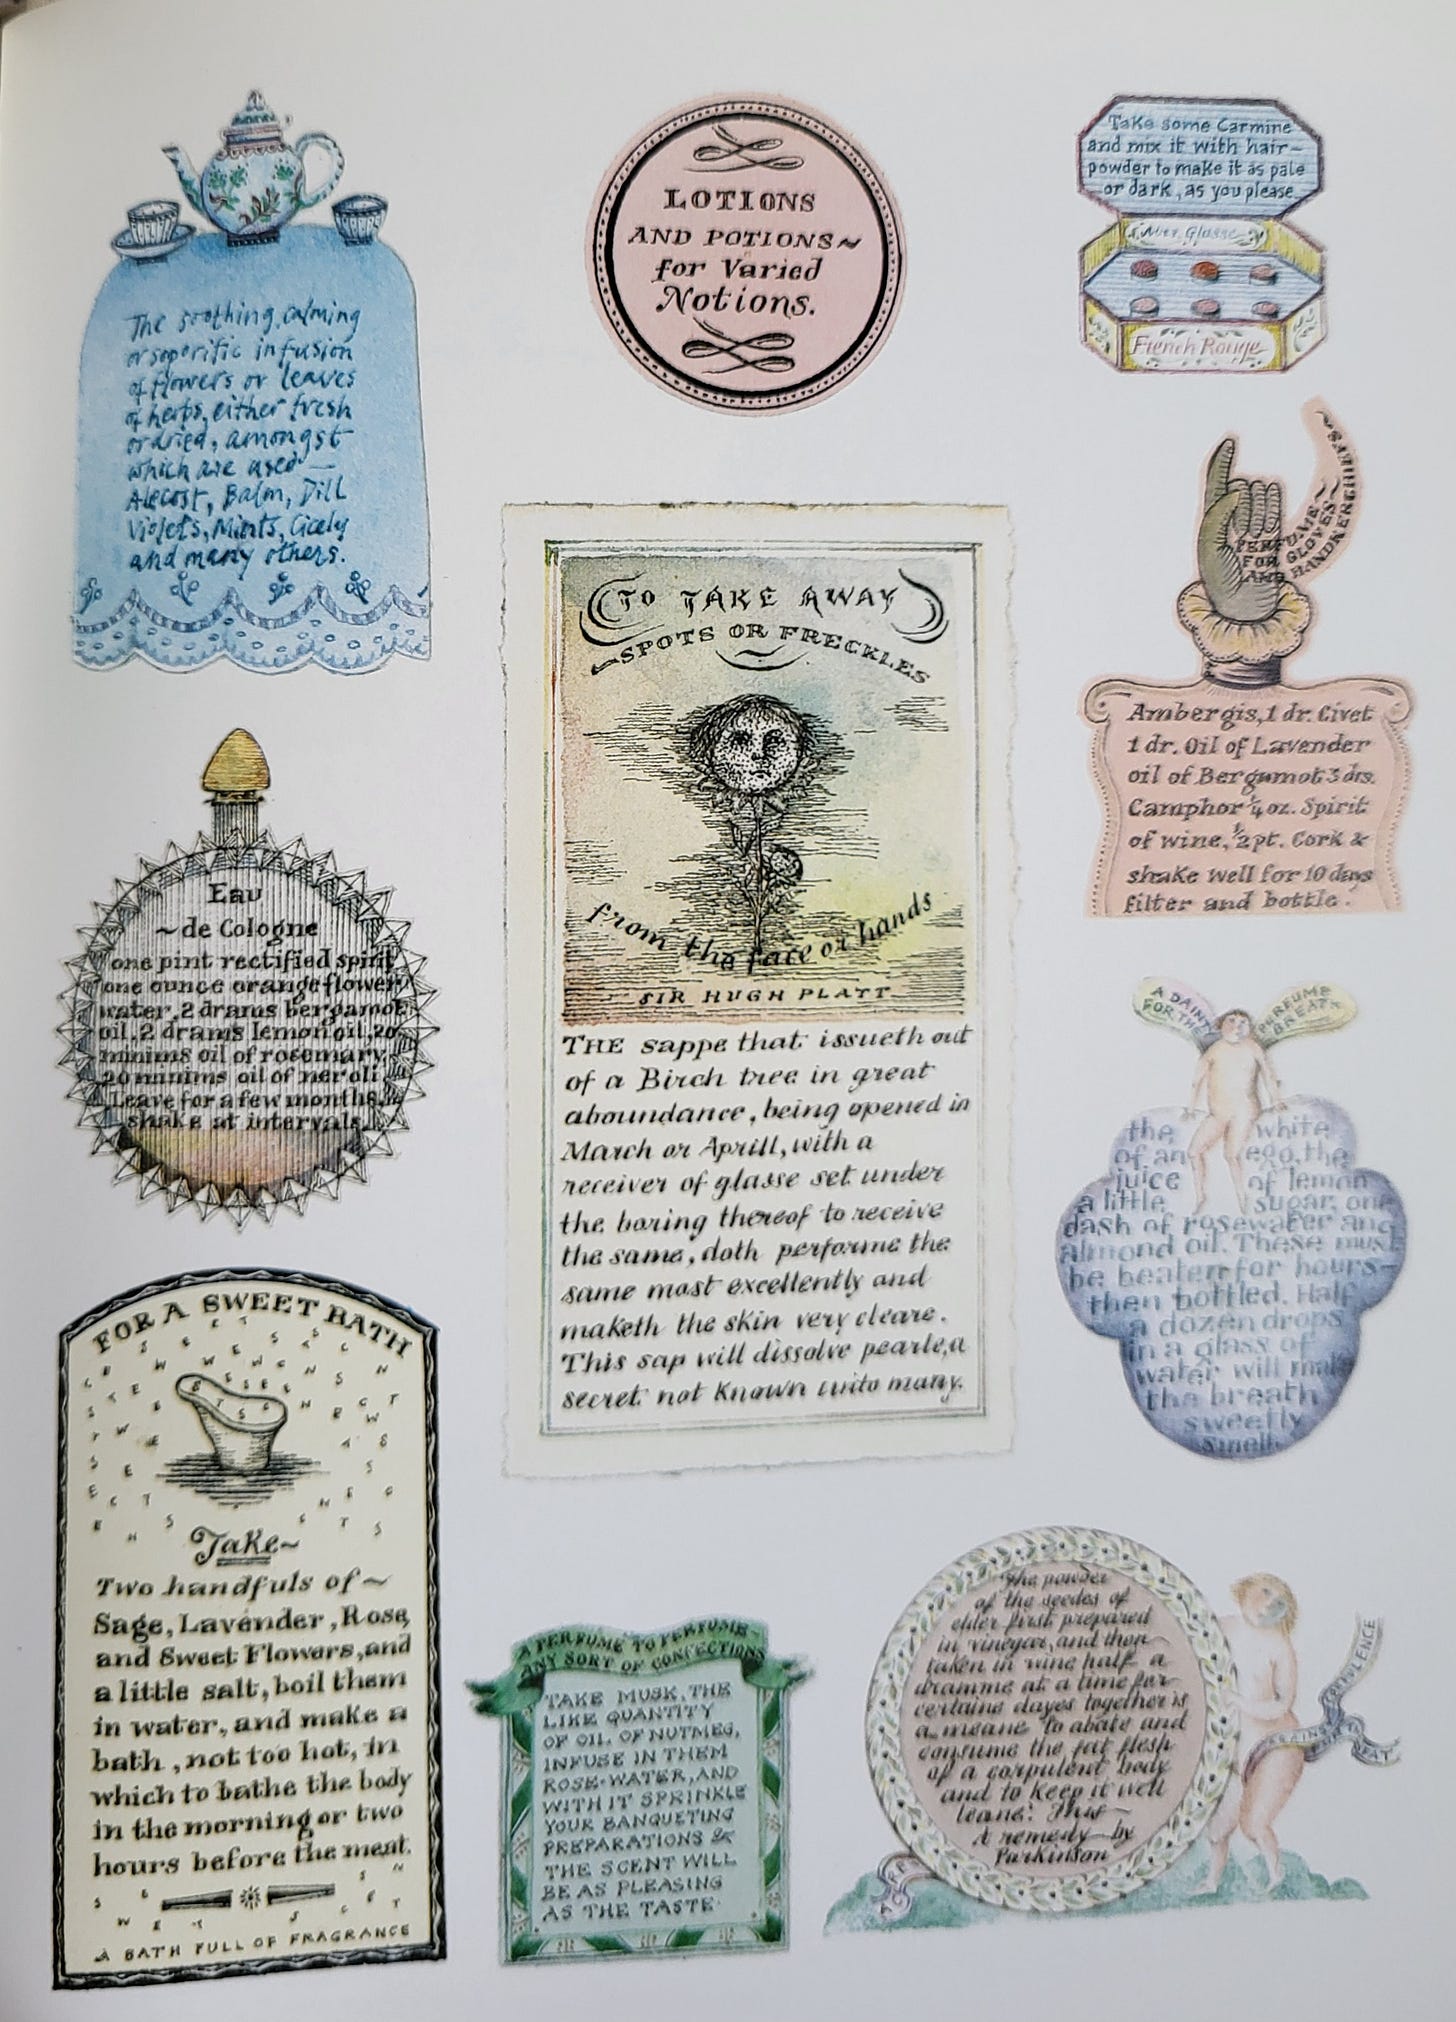 The soothing, calming
or soporific infusion
of flowers or leaves
of herbs, either fresh
or dried, amongst
which are used —
Alecost, Balm, Dill
Violets, Mints, Cicely
and many others.
LOTIONS
AND POTIONS~
for Varied
Notions.
Take some Carmine
and mix it with hair-
powder to make it as pale
or dark, as you please
Glasse
French Rouge
PERFUME~
FOR GLOVES~
AND HANDKERCHIEFS~
Ambergis, 1 dr. Civet
1 dr. Oil of Lavender
oil of Bergamot 3 drs.
Camphor ¼ oz. Spirit
of wine, ½ pt. Cork &
shake well for 10 days
filter and bottle.
TO TAKE AWAY
~SPOTS OR FRECKLES
from the face or hands
SIR HUGH PLATT
THE sappe that issueth out
of a Birch tree in great
aboundance, being opened in
March or Aprill, with a
receiver of glasse set under
the boring thereof to receive
the same, doth performe the
same most excellently and
maketh the skin very cleare.
This sap will dissolve pearle, a
secret not known unto many.
Eau
~de Cologne
one pint rectified spirit
one ounce orangeflower
water, 2 drams bergamot
oil, 2 drams lemon oil, 20
minims oil of rosemary,
20 minims oil of neroli
Leave for a few months,
shake at intervals.
A DAINTY PERFUME
FOR THE BREATH
the white
of an egg, the
juice of lemon
a little sugar, one
dash of rosewater and
almond oil. These must
be beaten for hours-
then bottled. Half
a dozen drops
in a glass of
water will make
the breath
sweetly
smell.
FOR A SWEET BATH
Take~
Two handfuls of~
Sage, Lavender, Rose,
and Sweet Flowers, and
a little salt, boil them
in water, and make a
bath, not too hot, in
which to bathe the body
in the morning or two
hours before the meat.
A BATH FULL OF FRAGRANCE
A PERFUME TO PERFUME~
ANY SORT OF CONFECTIONS
TAKE MUSK, THE
LIKE QUANTITY
OF OIL OF NUTMEG,
INFUSE IN THEM
ROSE-WATER, AND
WITH IT SPRINKLE
YOUR BANQUETING
PREPARATIONS &
THE SCENT WILL
BE AS PLEASING
AS THE TASTE
The powder
of the seedes of
elder first prepared
in vinegar, and then
taken in wine half a
dramme at a time for
certaine dayes together is
a meane to abate and
consume the fat flesh
of a corpulent body
and to keep it well
leane: This~
A remedy by
Parkinson
CORPULENCE
FAT